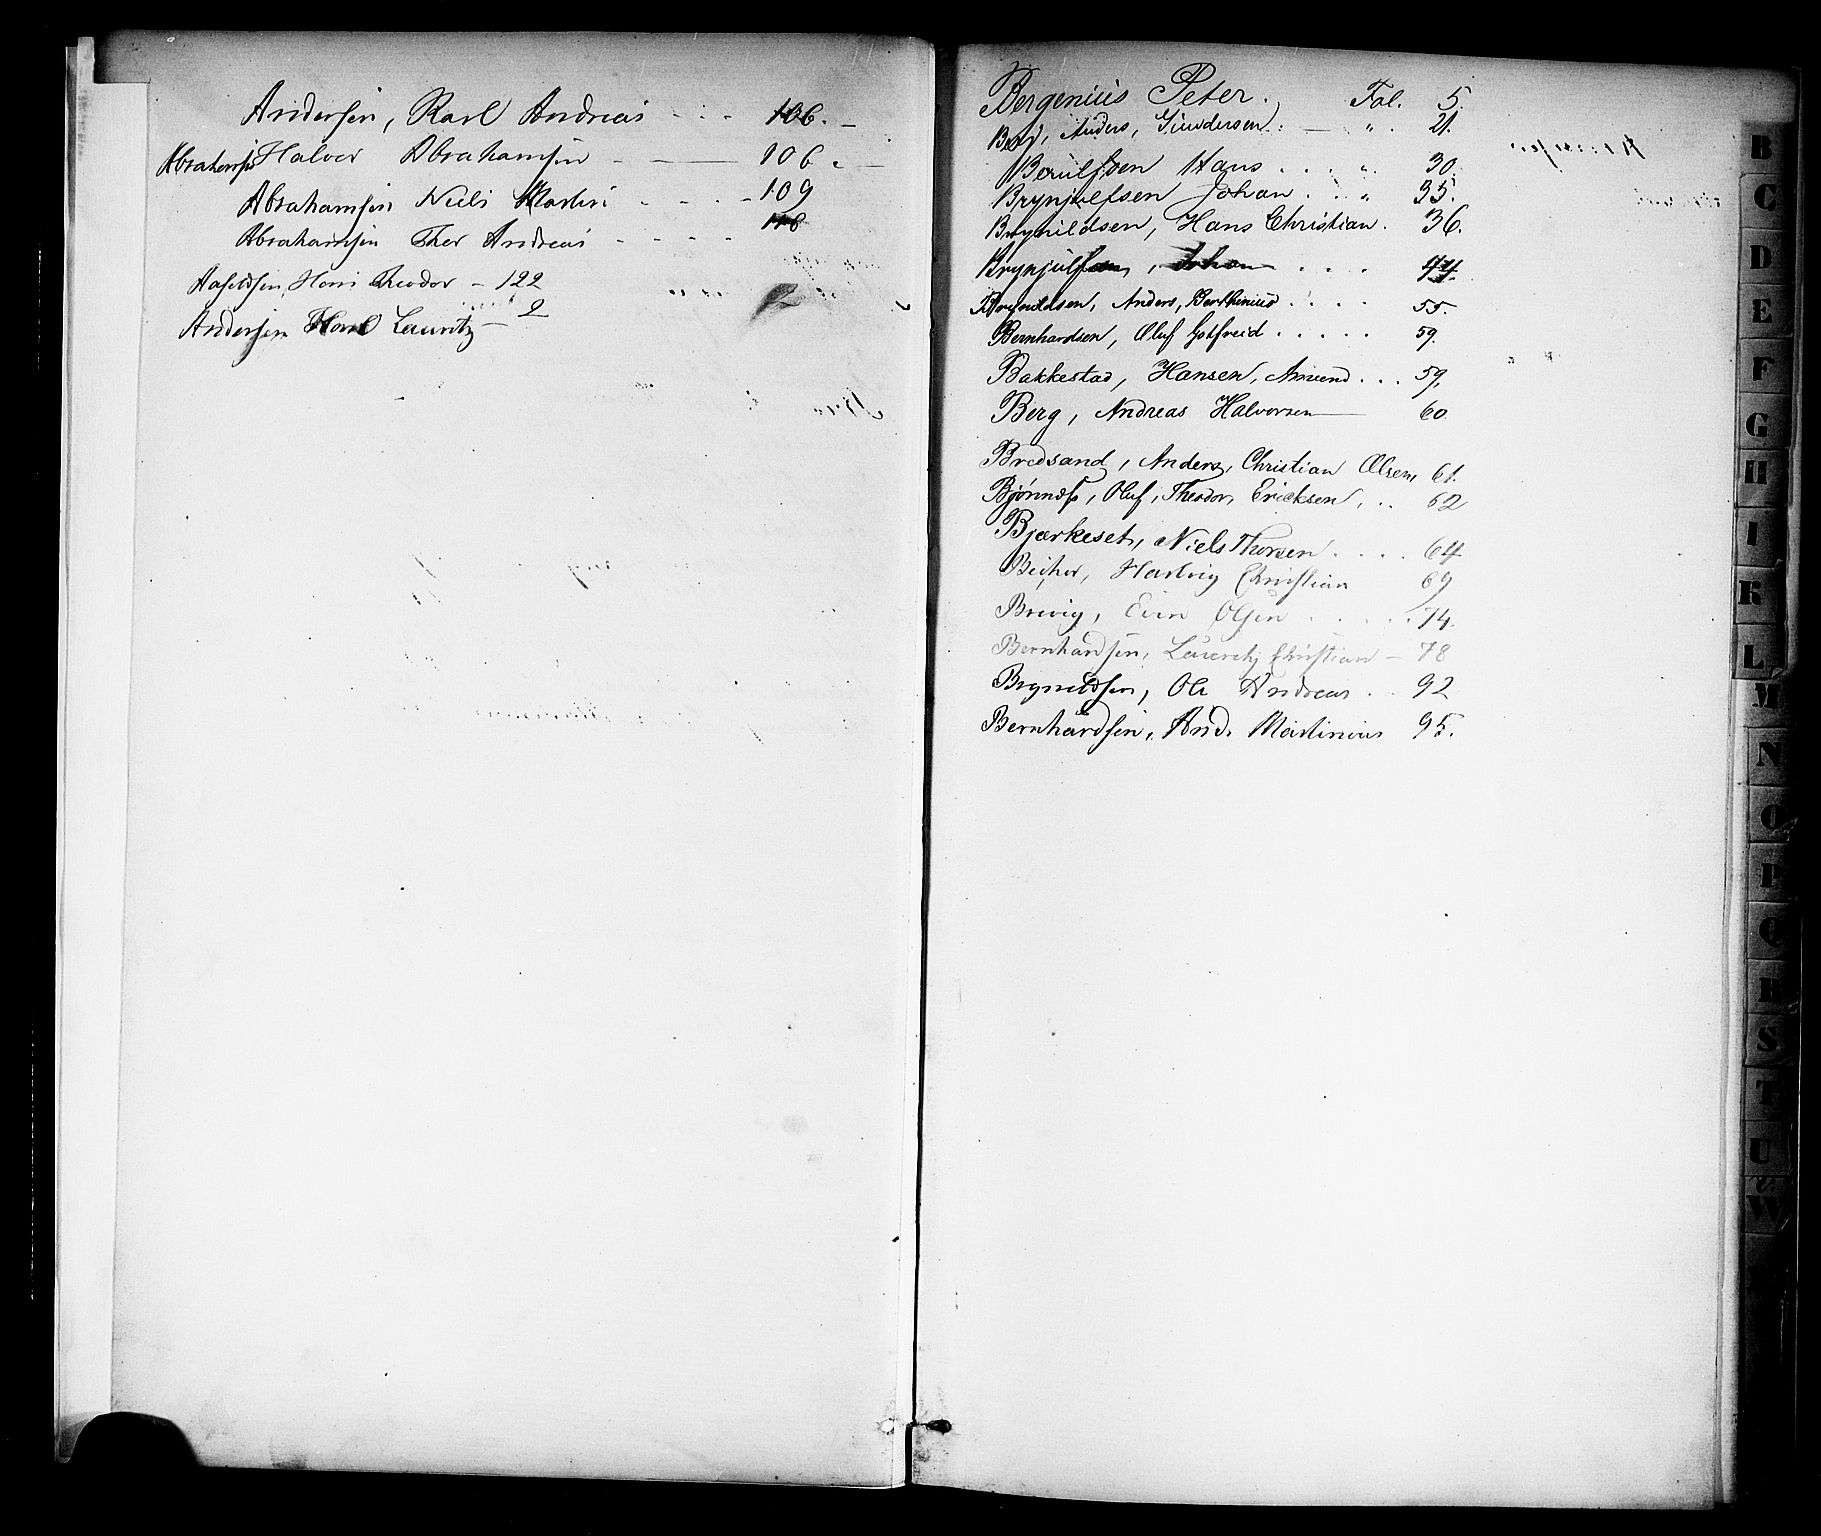 Andersen, Karl Andreas 106.
Abrahamsen Halvor Abrahamsen 106
Abrahamsen Niels Martin 109
Abrahamsen Thor Andreas 118
Theodor 122
Andersen Karl Lauritz 2
Bergenius Peter. Fol. 5.
Berg, Anders, Gundersen. " 21.
Berulfsen Hans " 30.
Brynjulfsen Johan " 35.
Brynildsen, Hans Christian. 36.
Brynjulfsen, Johan 44.
Brynildsen, Anders, Berthinius 55.
Bernhardsen, Oluf Gotfreid 59.
Bakkestad, Hansen, Amund 59.
Berg, Andreas Halvorsen 60.
Bredsand, Anders, Christian Olsen, 61.
Oluf, Theodor, Ericksen, 62
Bjerkeset, Niels Thorsen 64
Hartvig Christian 69
Brevig, Even Olsen 74.
Bernhardsen, Lauritz Christian 78
Brynildsen, Ole Andreas 92
Bernhardsen, And. Martinius 95.
B
C
D
E
F
G
H
I
K
L
M
N
O
P
Q
R
S
T
U
&
W